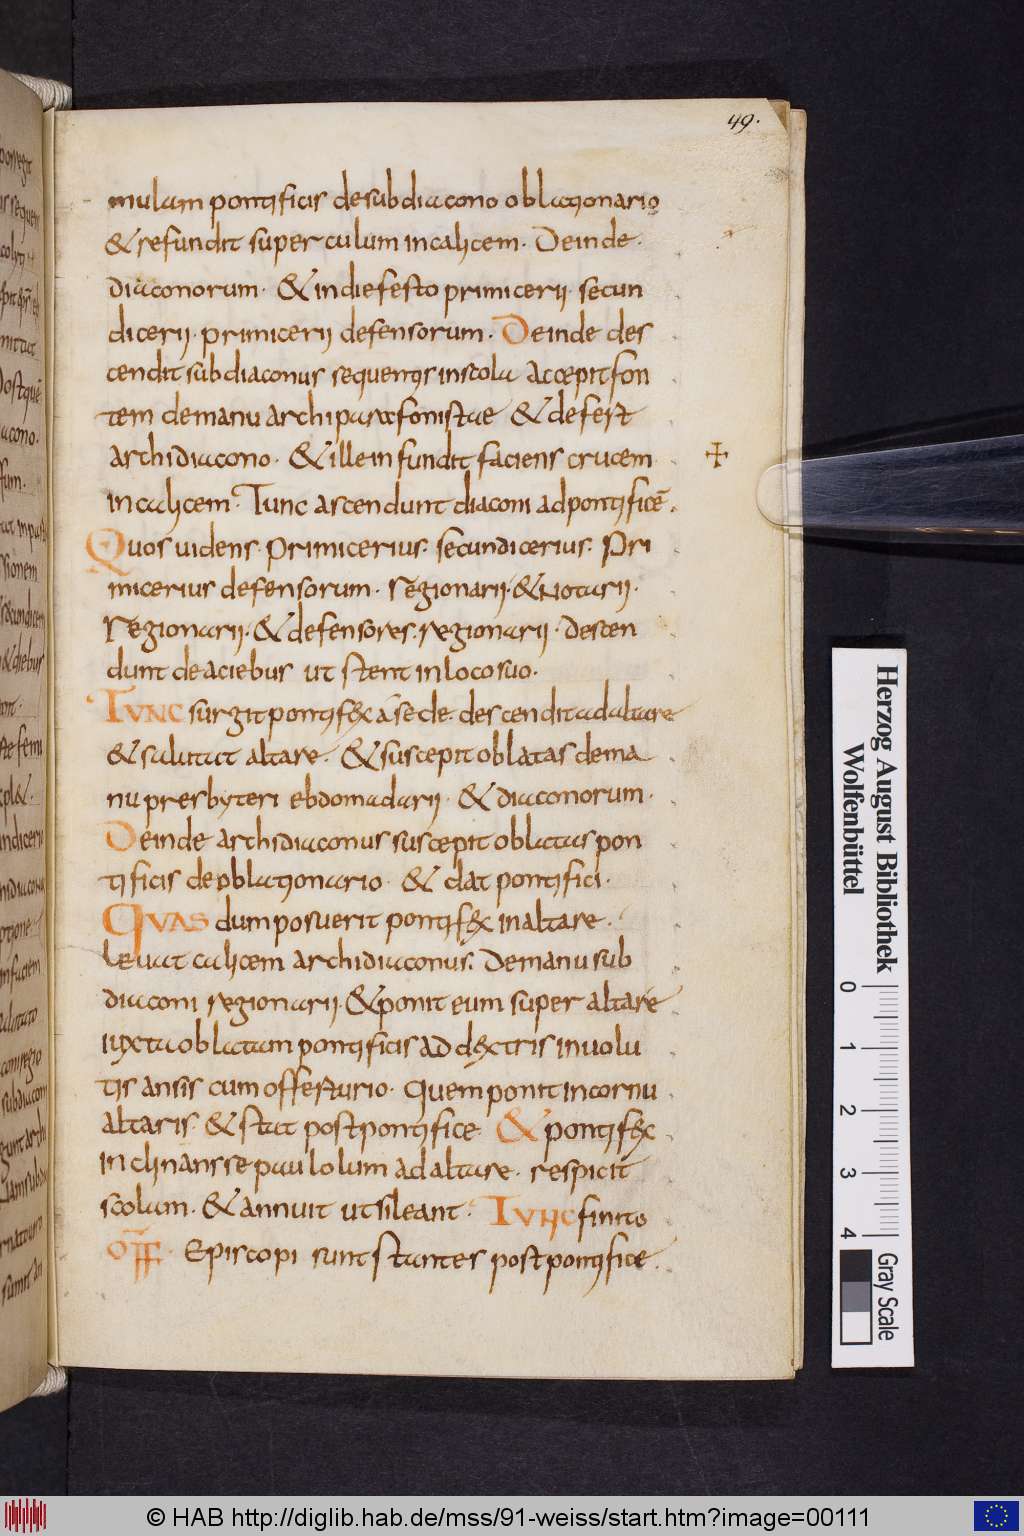 49.
mulam pontificis desubdiacono oblationario
& refundit super culum incalicem. Deinde.
diaconorum. & indiefesto primicerii. secun
dicerii. primicerii defensorum. Deinde des
cendit subdiaconus sequentis inscola accepit fon
tem demanu archiparafonistae & defert
archidiacono. & ille infundit faciens crucem
incalicem. Tunc ascendunt diaconi adpontificē.
Quos uidens. primicerius. secundicerius. Pri
micerius defensorum. regionarii. & notarii.
regionarii. & defensores. regionarii. descen
dunt deaciebus ut stent inloco suo.
Tunc surgit pontifex a sede. descendit adaltare
& salutat altare. & suscepit oblatas dema
nu presbyteri ebdomadarii. & diaconorum.
Deinde archidiaconus suscepit oblatas pon
tificis deoblationario. & dat pontifici.
Quas dum posuerit pontifex inaltare.
Leuat calicem archidiaconus. Demanu sub
diaconi regionarii. & ponit eum super altare
iuxta oblatam pontificis ad dextris inuolu
tis ansis cum offerturio. quem ponit incornu
altaris. & stat post pontifice & pontifex
inclinans se paululum ad altare. respicit
scolam. & annuit ut sileant. Tunc finito
off. Episcopi sunt stantes post pontifice.
Herzog August Bibliothek
Wolfenbüttel
0 1 2 3 4
Gray Scale
© HAB http://diglib.hab.de/mss/91-weiss/start.htm?image=00111